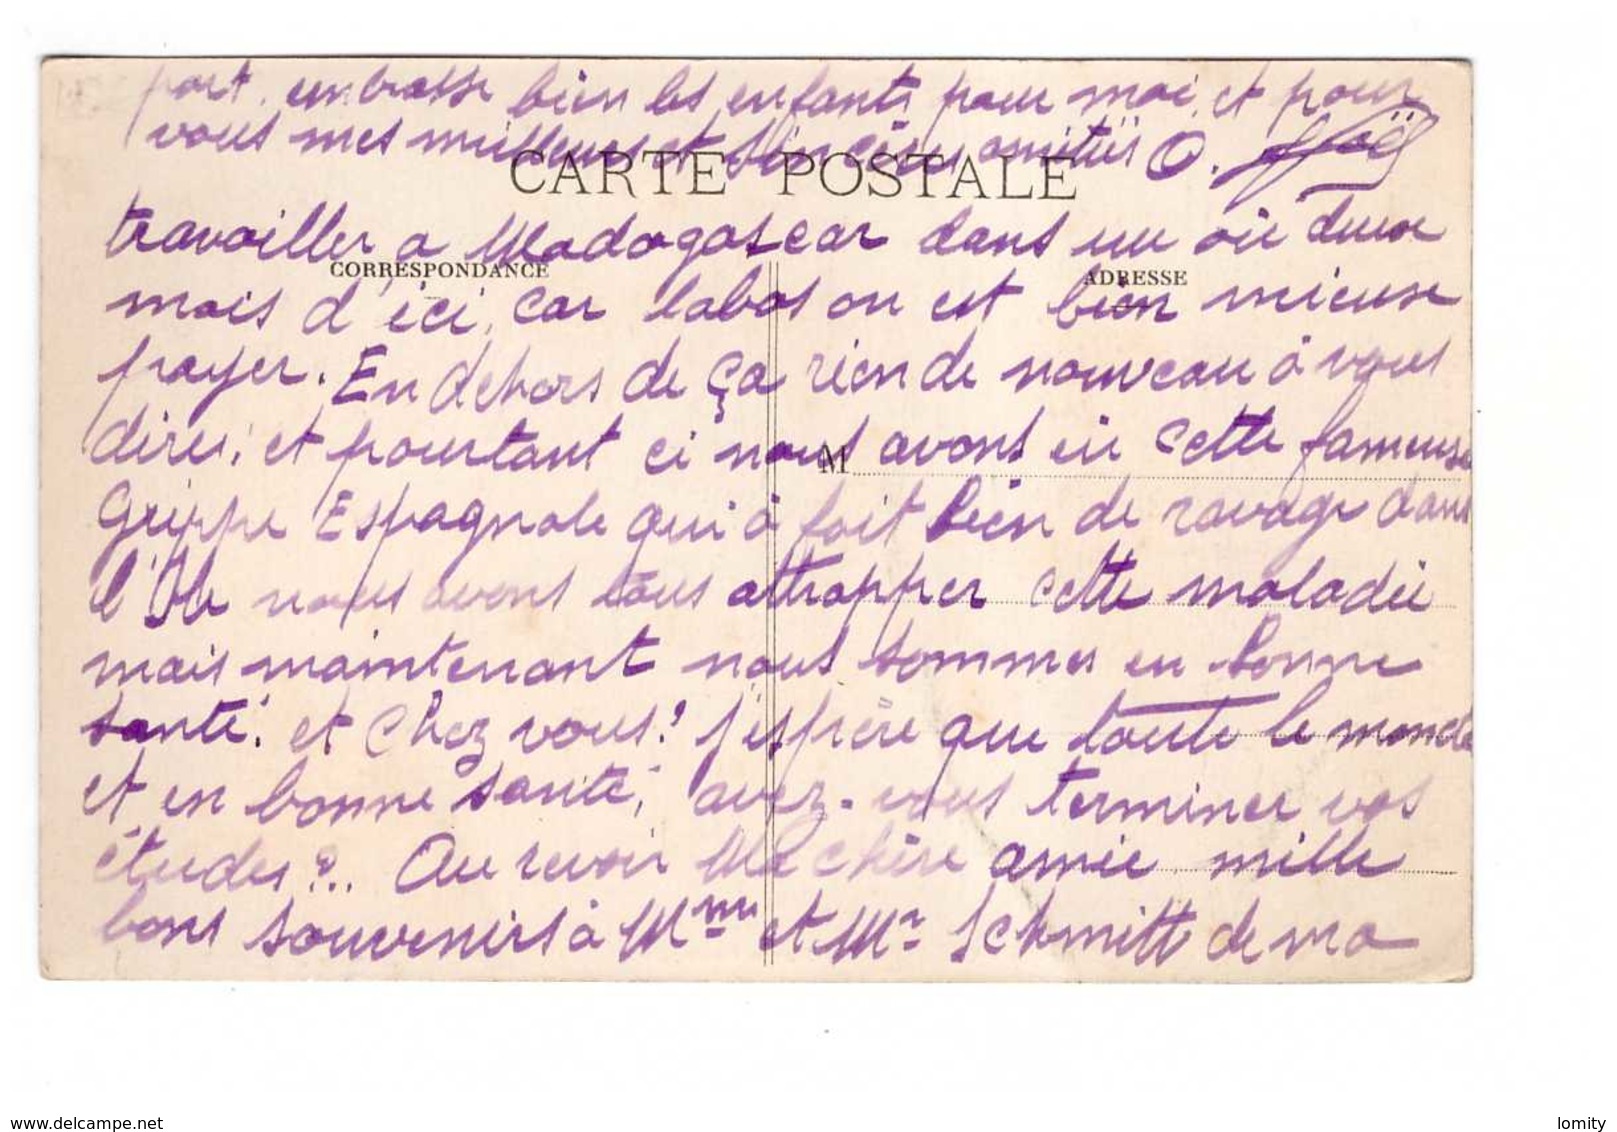 port, embrasse bien les enfants pour moi, et pour
vous mes meilleurs et sincères amitiés O. Noël
CARTE POSTALE
travailler a Madagascar dans un où deux
CORRESPONDANCE
ADRESSE
mois d'ici, car labas on est bien mieux
payer. En dehors de ça rien de nouveau à vous
dire, et pourtant ci nous avons eü cette fameuse
M
Grippe Espagnole qui à fait bien de ravage dans
l'Ile nous avons tous attrapper cette maladie
mais maintenant nous sommes en bonne
santé. et chez vous? j'espère que toute le monde
et en bonne santé, avez-vous terminer vos
études?.. Au revoir Ma chère amie mille
bons souvenirs à Mme et Mr Schmitt de ma
www.delcampe.net
lomity